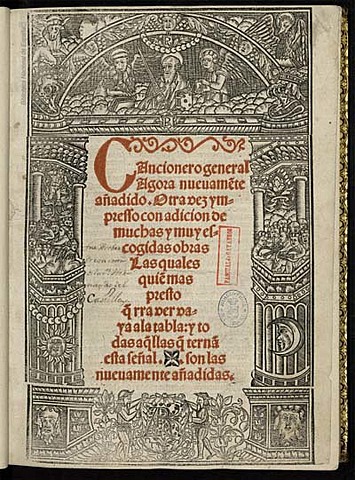 Cancionero general
Agora nueuamẽte
añadido. Otra vez ym-
presso con adicion de
muchas y muy es-
cogidas obras
Las quales
quiẽ mas
presto
q̃rra ver va-
ya a la tabla: y to
das aq̃llas q̃ ternã
esta señal. ✠ son las
nueuamente añadidas.